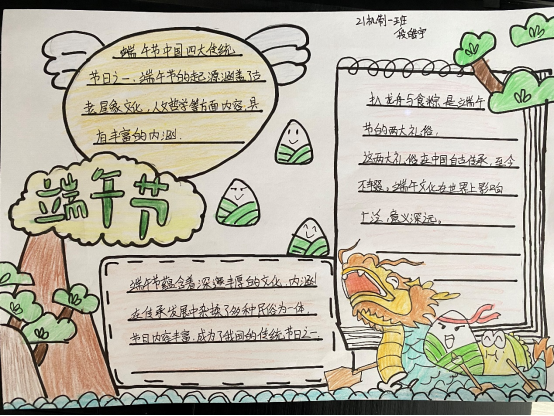 21机制一班
端午节中国四大传统
节日之一,端午节的起源涵盖了古
老星象文化,人文哲学等方面内容,具
有丰富的内涵.
端午节
扒龙舟与食粽是端午
节的两大礼俗,
这两大礼俗在中国自古传承,至今
不辍。端午文化在世界上影响
广泛,意义深远。
端午节蕴含着深邃丰富的文化内涵
在传承发展中杂揉了多种民俗为一体,
节日内容丰富,成为了我国的传统节日之一.